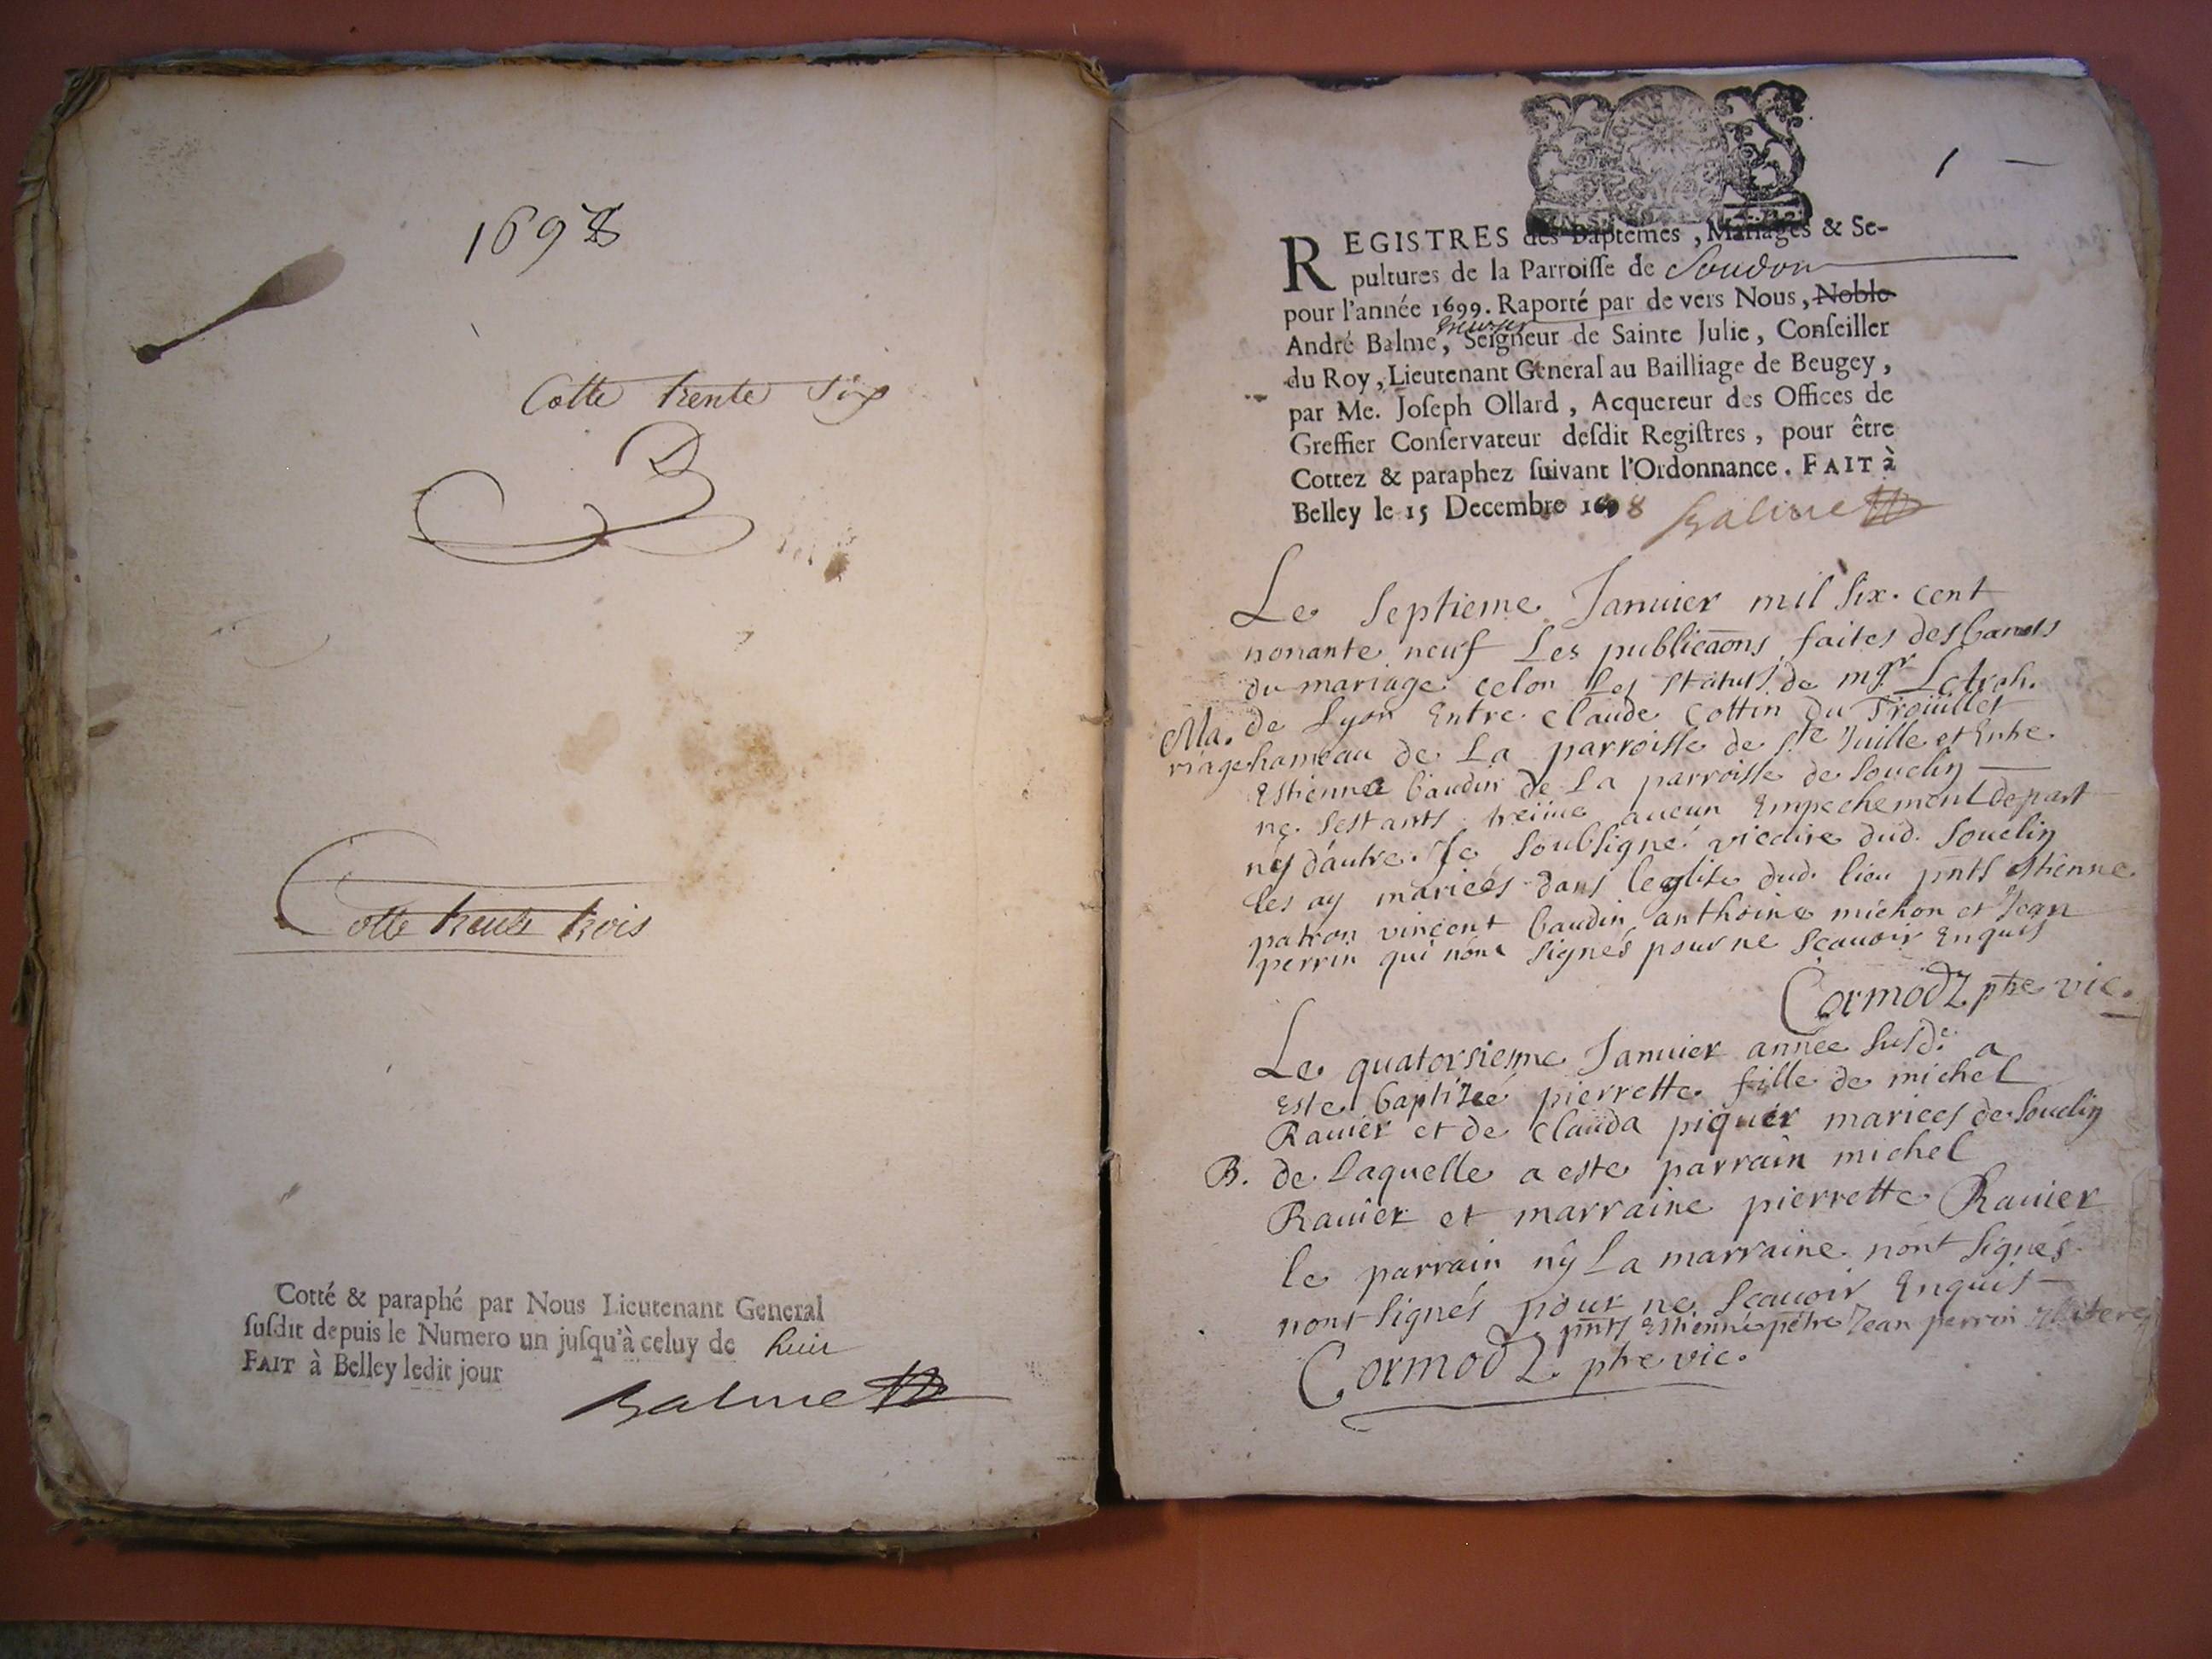 1698
Cotte trente six
Cotte trente trois
Cotté & paraphé par Nous Lieutenant General
susdit depuis le Numero un jusqu'à celuy de huit
FAIT à Belley ledit jour
Balme
1
REGISTRES des Baptêmes, Mariages & Se-
pultures de la Parroisse de Soudon
pour l'année 1699. Raporté par de vers Nous, Noble
André Balme, Seigneur de Sainte Julie, Conseiller
du Roy, Lieutenant General au Bailliage de Beugey,
par Me. Joseph Ollard, Acquereur des Offices de
Greffier Conservateur desdit Registres, pour être
Cottez & paraphez suivant l'Ordonnance. FAIT à
Belley le 15 Decembre 1698 Balme
Le septieme Januier mil six cent
nonante neuf Les publicaons faites des bans
du mariage celon Les statuts de mgr
Ma- de Lyon Entre claude Cottin du Trouillet
riage hameau de La parroisse de ste Juille et Entre
Estiennea baudin de La parroisse de Souclin
ne sestants aucun Empechement de part
ny dautre. Je soubsigné vicaire dud. Souclin
les ay mariees dans leglise dud. lieu pnts estienne
patron vincent baudin anthoine michon et Jean
perrin qui nont signés pour ne scauoir Enquis
Cormodz ptre vic.
Le quatorsieme Januier année susd. a
Este baptizeé pierrette fille de michel
Rauier et de Clauda piquer mariees de Souclin
B. de Laquelle a este parrain michel
Rauier et marraine pierrette Rauier
le parrain ny La marraine nont signés
nont signés pour ne scauoir Enquis
pnts Estienne petre Jean perrin
Cormodz ptre vic.